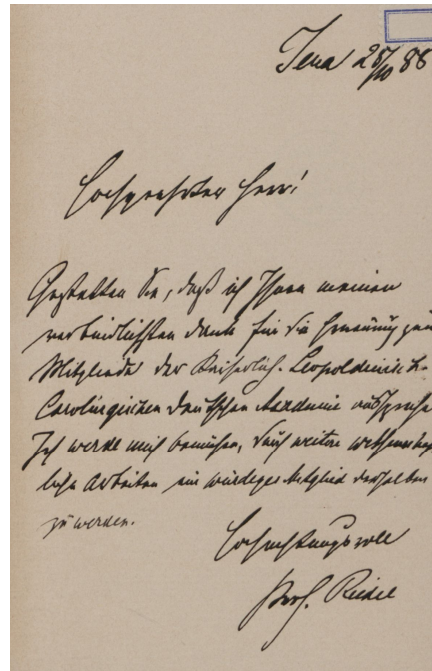 Jena 28/10 88
Hochgeehrter Herr!
Gestatten Sie, daß ich Ihnen meinen
verbindlichsten Dank für die Ernennung zum
Mitgliede der Kaiserlich. Leopoldinisch-
Carolingischen Deutschen Akademie ausspreche.
Ich werde mich bemühen, durch weitere wissenschaft
liche Arbeiten ein würdiges Mitglied derselben
zu werden.
Hochachtungsvoll
Prof. Riedel